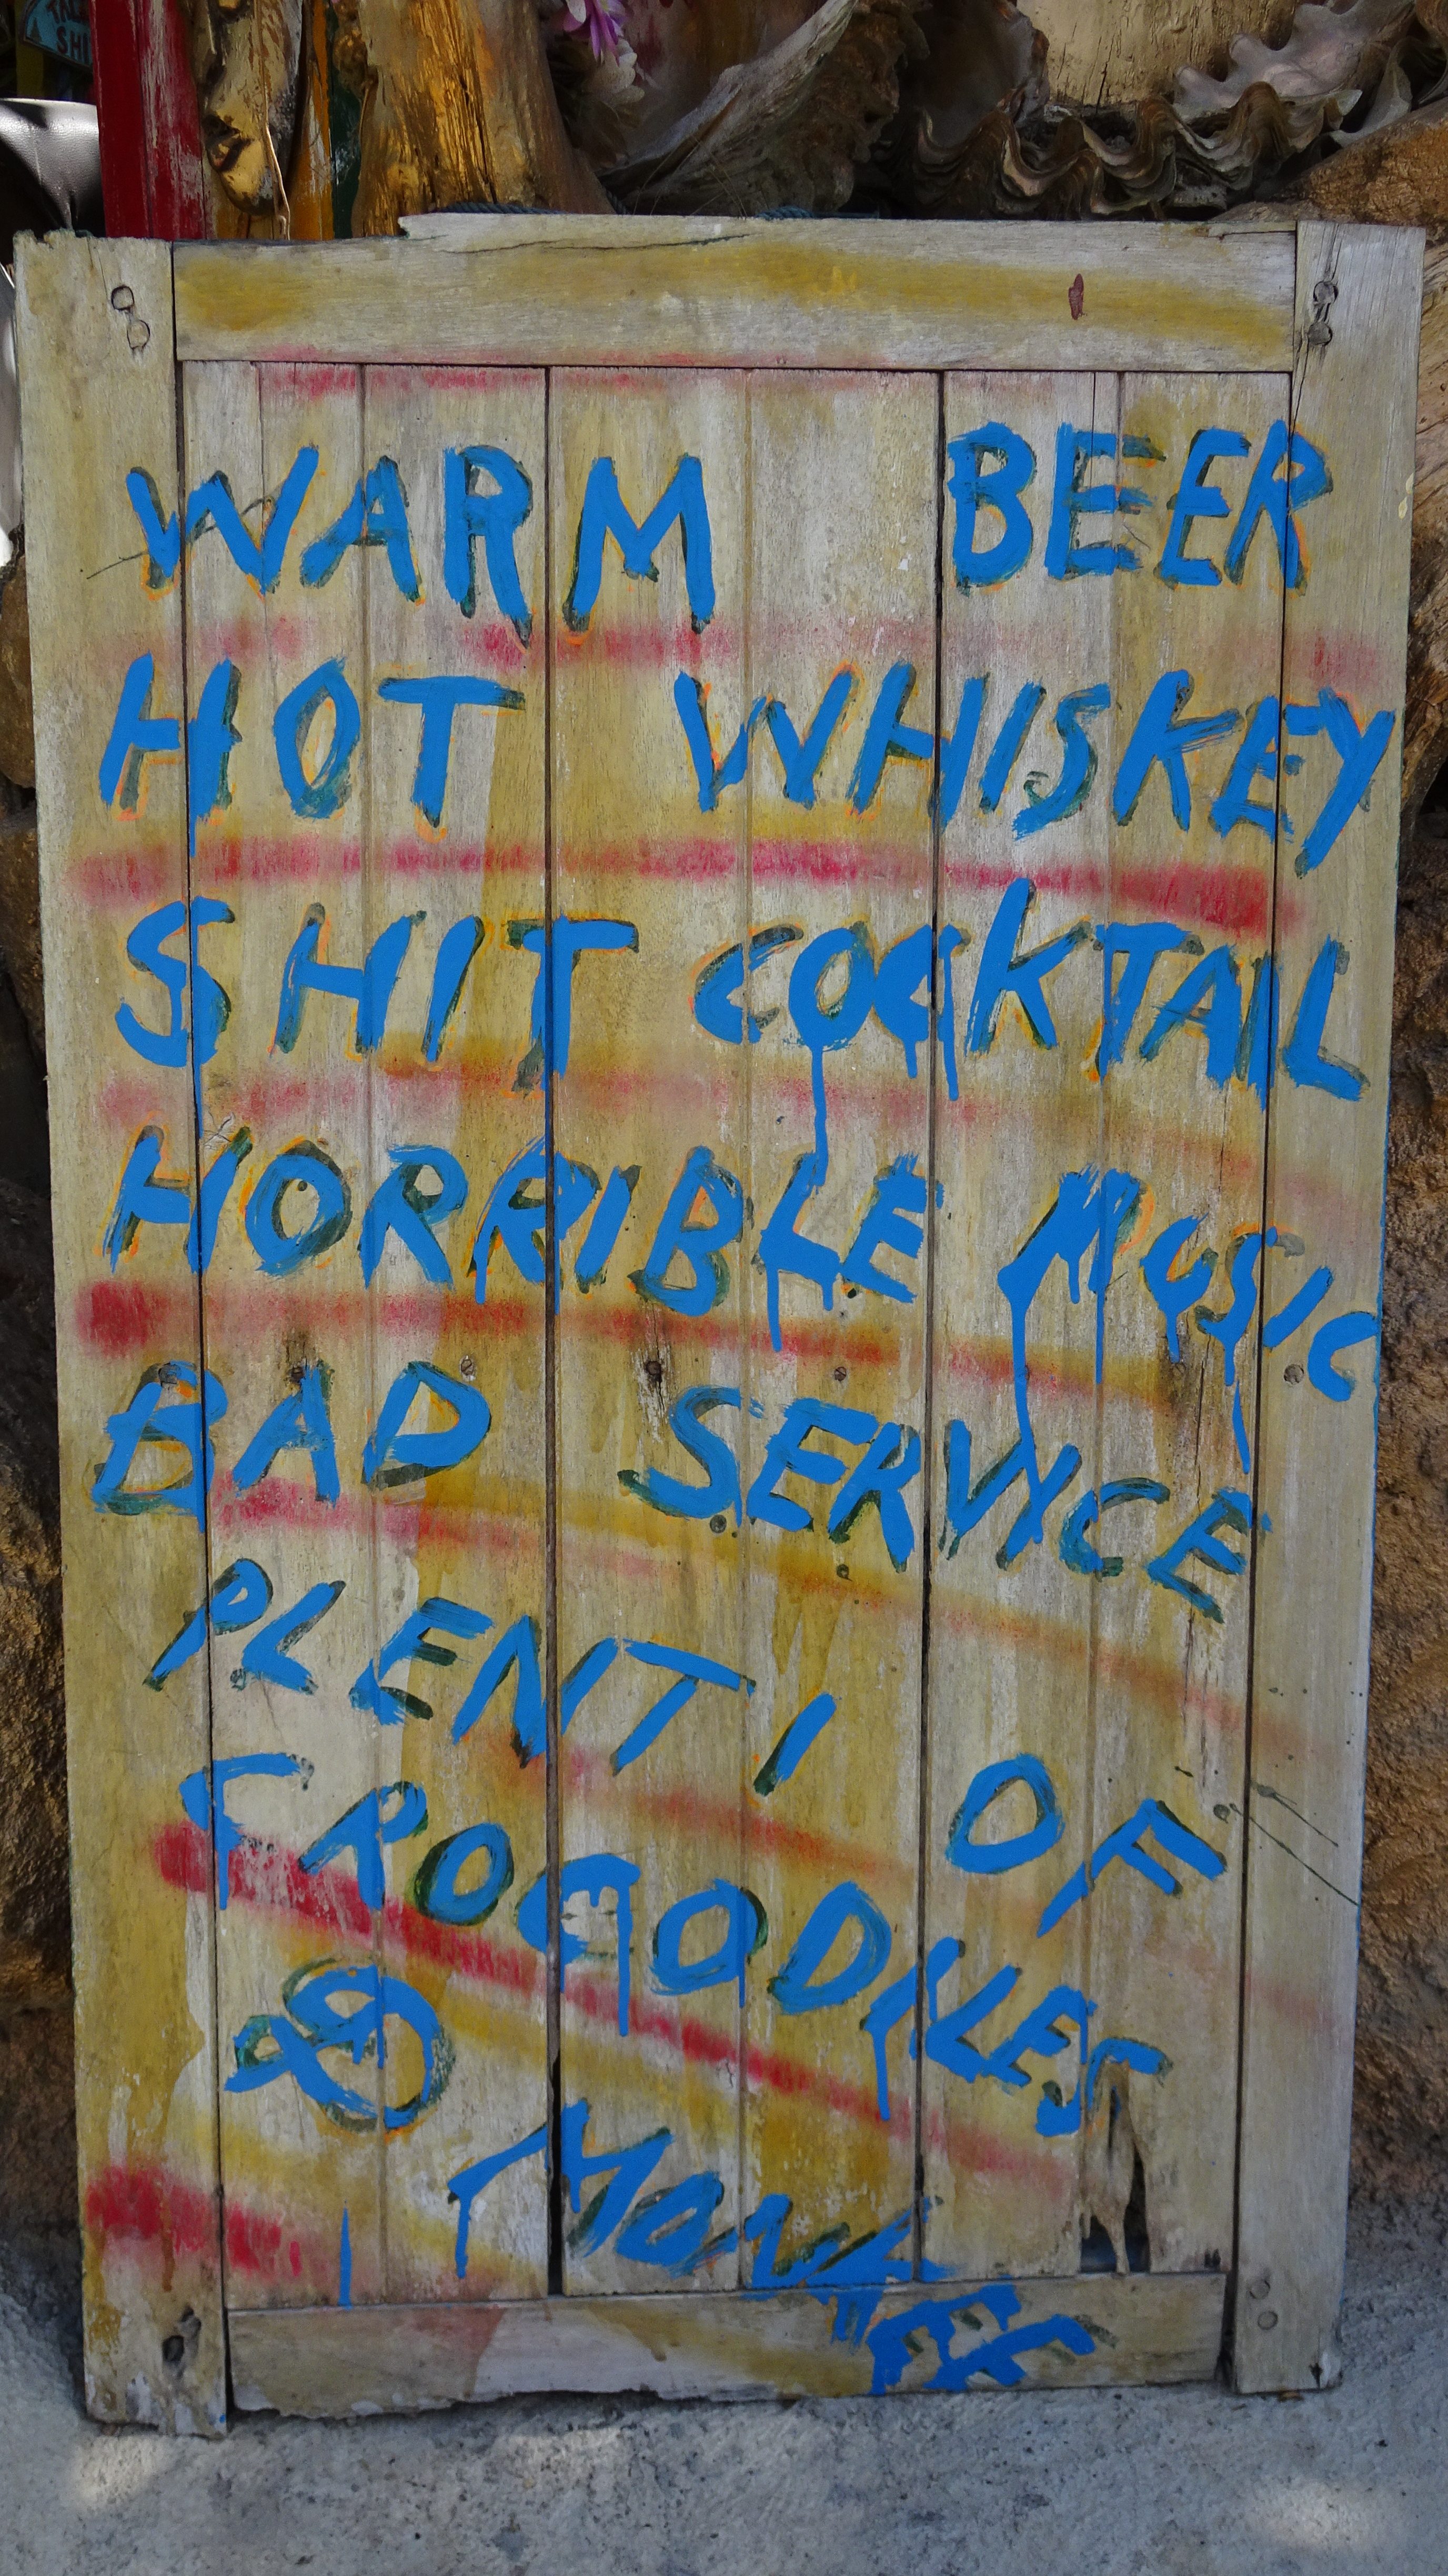 WARM BEER
HOT WHISKEY
SHIT COCKTAIL
HORRIBLE MUSIC
BAD SERVICE
PLENTI OF
CROCODILES
&